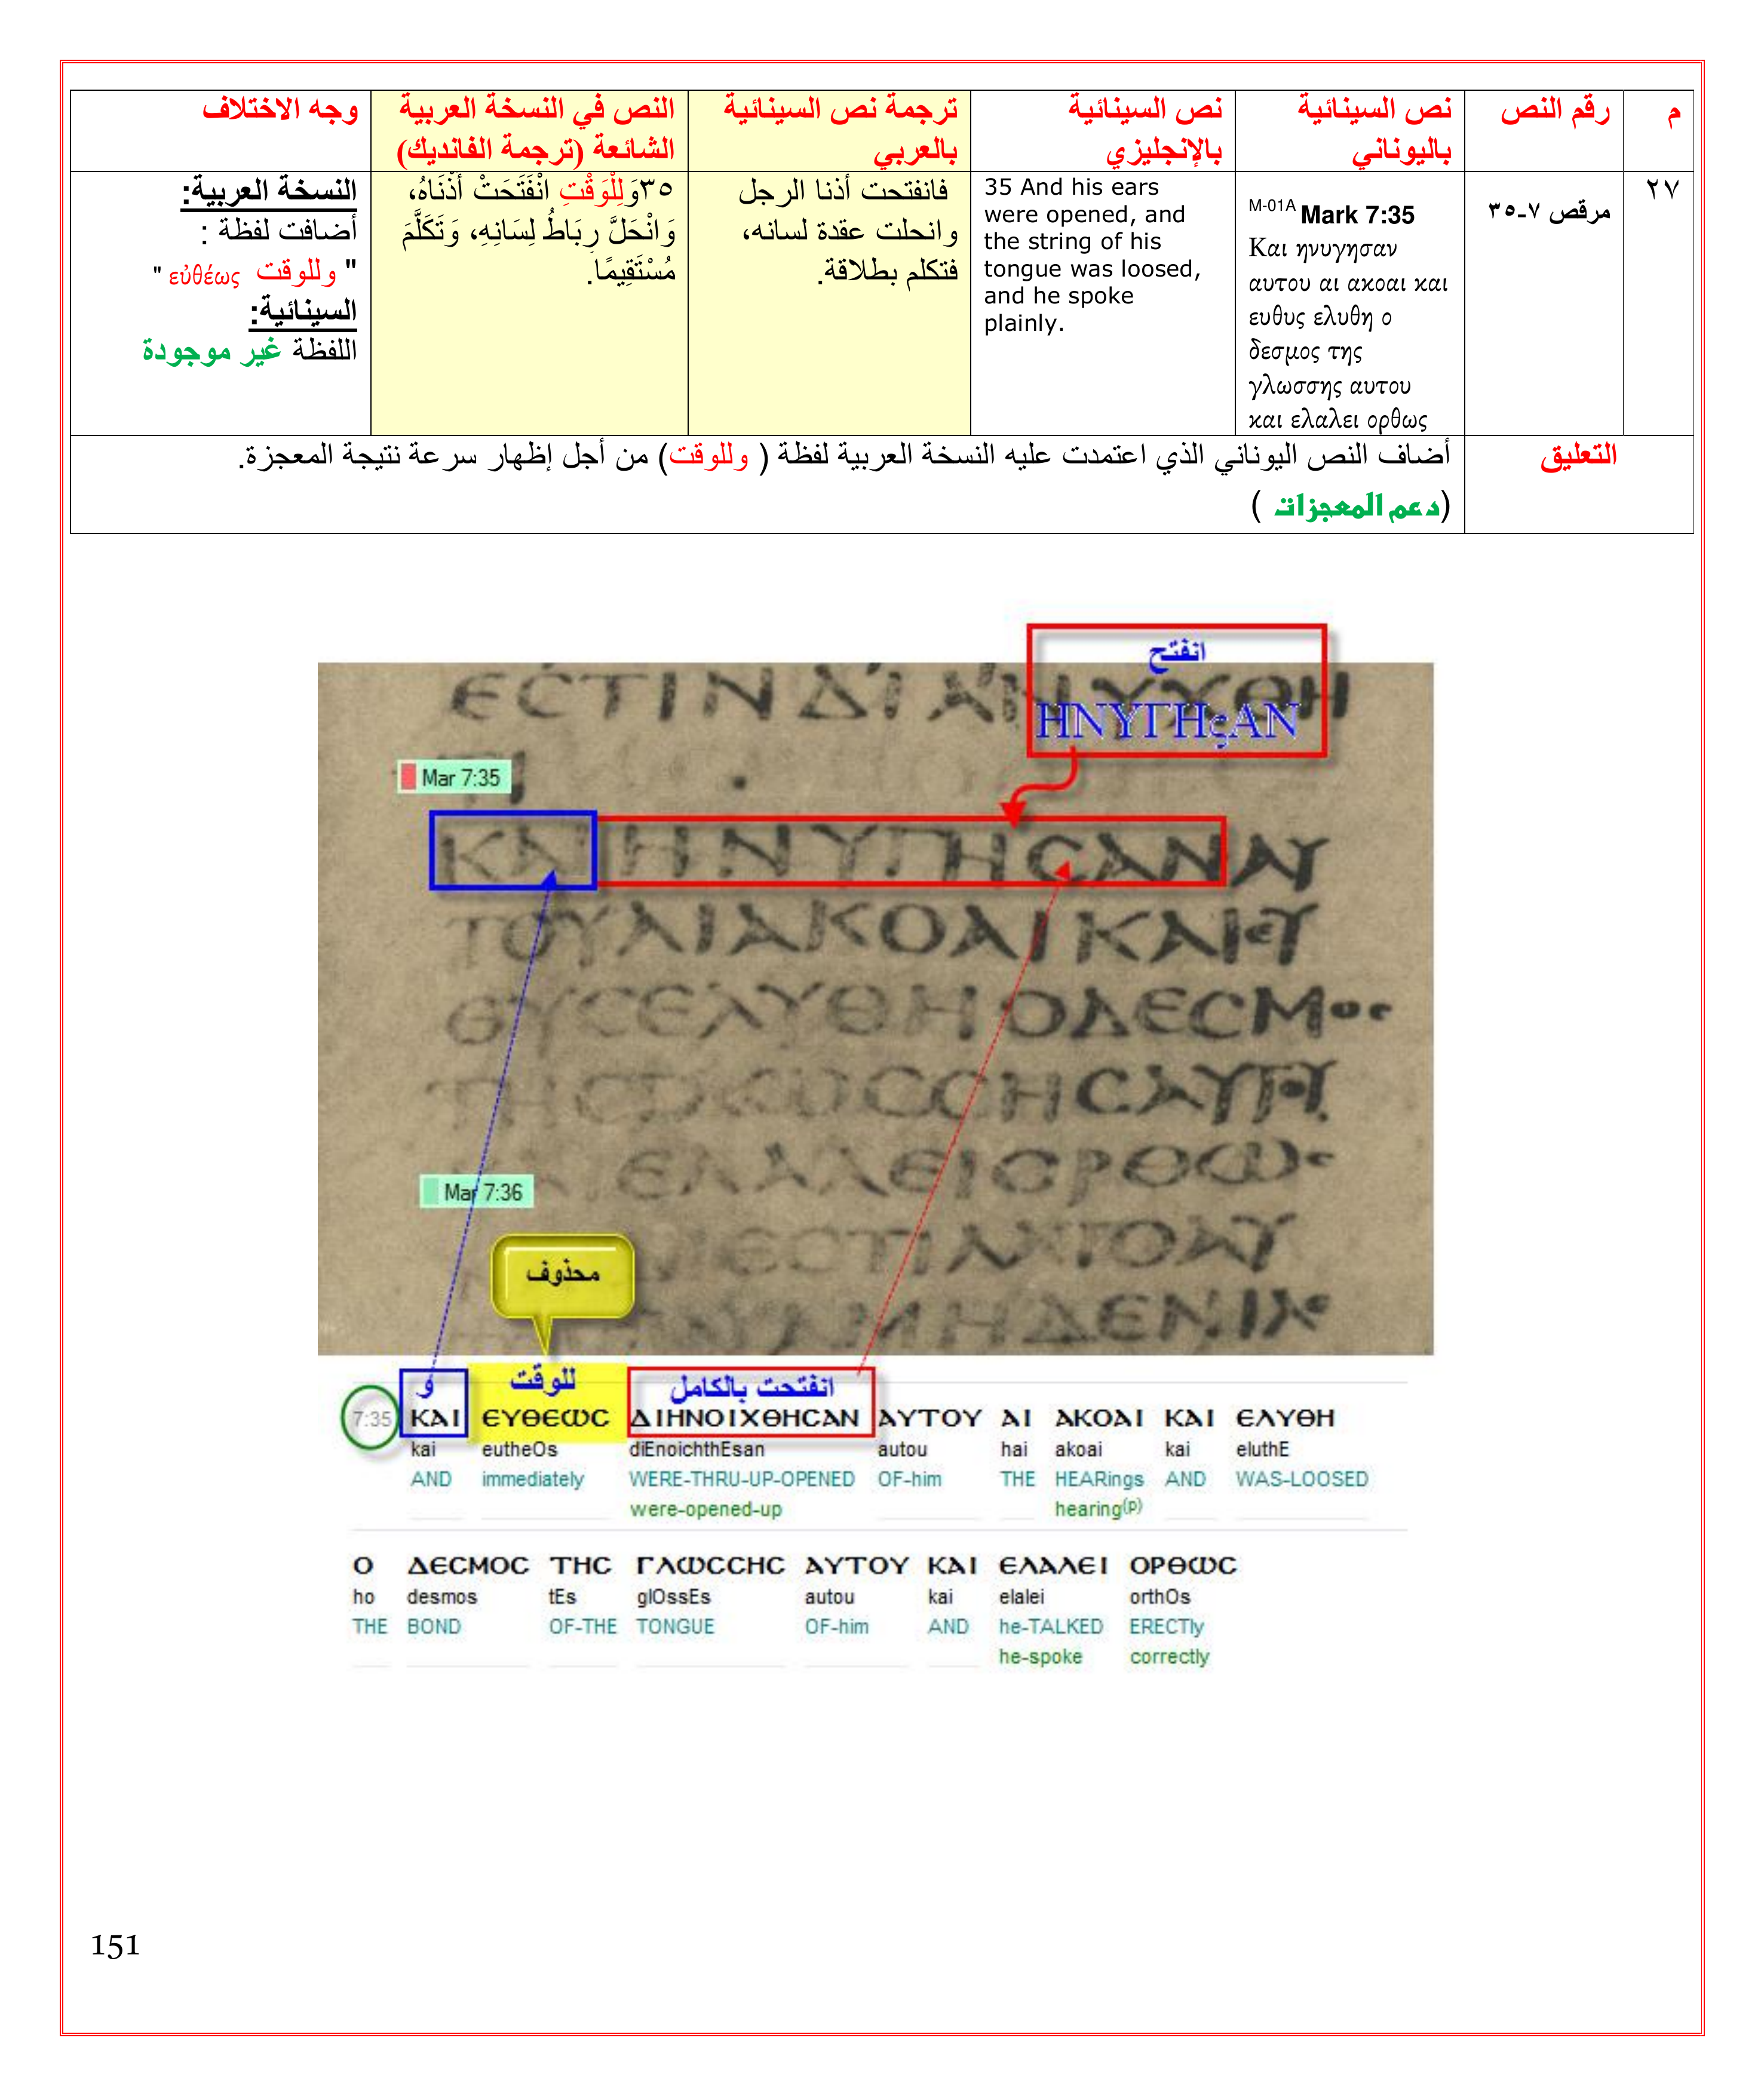 م
رقم النص
نص السينائية
باليوناني
نص السينائية
بالإنجليزي
ترجمة نص السينائية
بالعربي
النص في النسخة العربية
الشائعة (ترجمة الفانديك)
وجه الاختلاف
٢٧
مرقص ٧-٣٥
M-01A Mark 7:35
Και ηνυγησαν
αυτου αι ακοαι και
ευθυς ελυθη ο
δεσμος της
γλωσσης αυτου
και ελαλει ορθως
35 And his ears
were opened, and
the string of his
tongue was loosed,
and he spoke
plainly.
فانفتحت أذنا الرجل
وانحلت عقدة لسانه،
فتكلم بطلاقة.
٣٥وَلِلْوَقْتِ انْفَتَحَتْ أُذْنَاهُ،
وَانْحَلَّ رِبَاطُ لِسَانِهِ، وَتَكَلَّمَ
مُسْتَقِيمًا.
النسخة العربية:
أضافت لفظة :
" وللوقت εὐθέως "
السينائية:
اللفظة غير موجودة
التعليق
أضاف النص اليوناني الذي اعتمدت عليه النسخة العربية لفظة ( وللوقت) من أجل إظهار سرعة نتيجة المعجزة.
(دعم المعجزات )
انفتح
ΕCΤΙΝΔΙΑΝΥΧΘΗ
ΗΝΥΓΗςΑΝ
Mar 7:35
ΚΑΙΗΝΥΓΗCΑΝΑΥ
ΤΟΥΑΙΑΚΟΑΙΚΑΙΕΥ
ΘΥCΕΛΥΘΗΟΔΕCΜΟC
ΤΗCΓΛΩCCΗCΑΥΤΟΥ
ΕΛΑΛΕΙΟΡΘΩC
Mar 7:36
ΔΙΕCΤΙΛΑΤΟΑΥ
ΜΗΔΕΝΙ
محذوف
و
للوقت
انفتحت بالكامل
7:35 ΚΑΙ ΕΥΘΕΩC ΔΙΗΝΟΙΧΘΗCΑΝ ΑΥΤΟΥ ΑΙ ΑΚΟΑΙ ΚΑΙ ΕΛΥΘΗ
kai eutheOs diEnoichthEsan autou hai akoai kai eluthE
AND immediately WERE-THRU-UP-OPENED OF-him THE HEARings AND WAS-LOOSED
were-opened-up hearing(p)
Ο ΔΕCΜΟC ΤΗC ΓΛΩCCΗC ΑΥΤΟΥ ΚΑΙ ΕΛΑΛΕΙ ΟΡΘΩC
ho desmos tEs glOssEs autou kai elalei orthOs
THE BOND OF-THE TONGUE OF-him AND he-TALKED ERECTly
he-spoke correctly
151